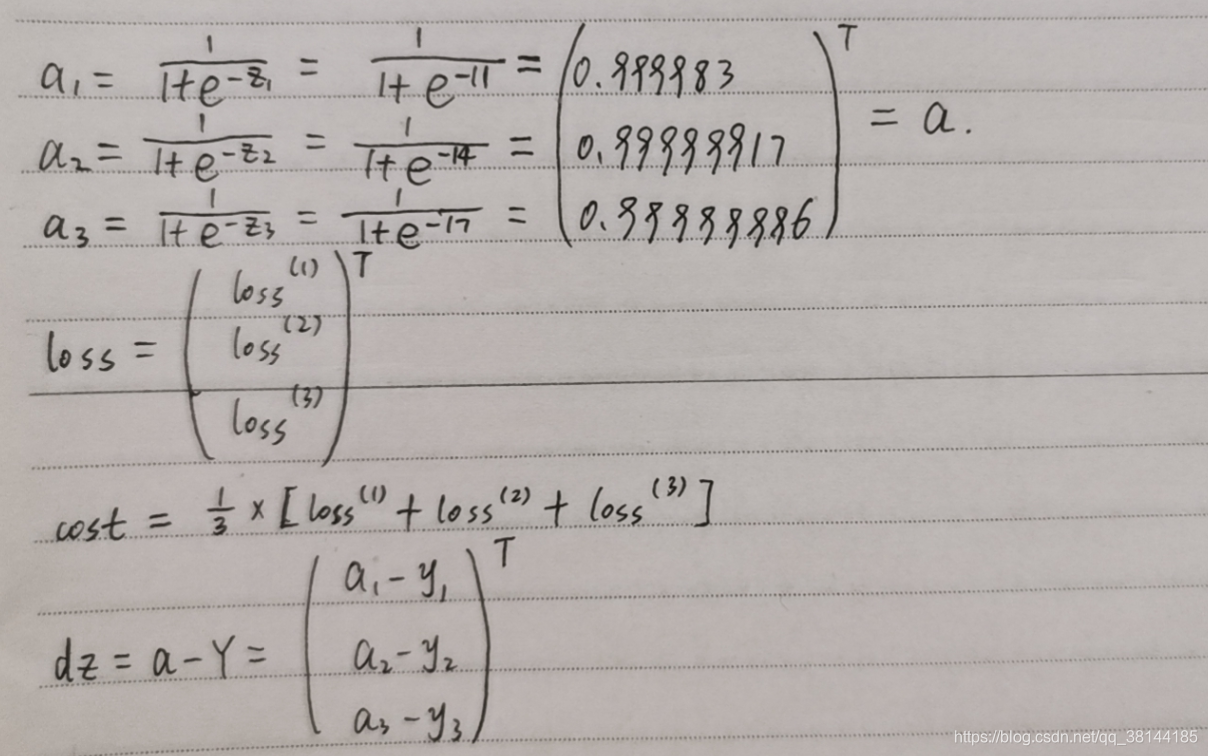 a₁ = 1/(1+e^(-z₁)) = 1/(1+e^(-11)) = (0.999983
a₂ = 1/(1+e^(-z₂)) = 1/(1+e^(-14)) = 0.99999917 )^T = a.
a₃ = 1/(1+e^(-z₃)) = 1/(1+e^(-17)) = 0.999999996
loss = (loss^(1)
loss^(2)
loss^(3))^T
cost = 1/3 × [loss^(1) + loss^(2) + loss^(3)]
dz = a - Y = (a₁ - y₁
a₂ - y₂
a₃ - y₃)^T
https://blog.csdn.net/qq_38144185